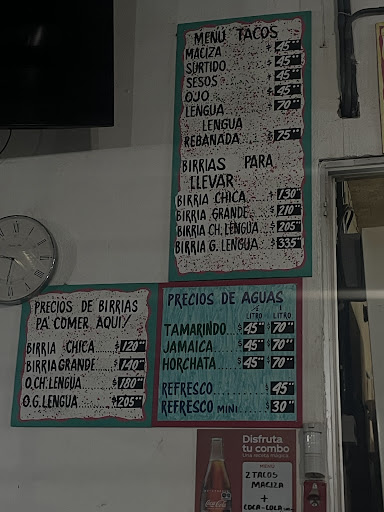 MENÚ TACOS
MACIZA $45.00
SURTIDO $45.00
SESOS $45.00
OJO $45.00
LENGUA $70.00
LENGUA
REBANADA $75.00
BIRRIAS PARA
LLEVAR
BIRRIA CHICA $130.00
BIRRIA GRANDE $210.00
BIRRIA CH. LENGUA $205.00
BIRRIA G. LENGUA $335.00
PRECIOS DE BIRRIAS
PA' COMER AQUI
BIRRIA CHICA $120.00
BIRRIA GRANDE $140.00
O.CH. LENGUA $180.00
O.G. LENGUA $205.00
PRECIOS DE AGUAS
½ LITRO LITRO
TAMARINDO $45.00 $70.00
JAMAICA $45.00 $70.00
HORCHATA $45.00 $70.00
REFRESCO $45.00
REFRESCO MINI $30.00
Disfruta
tu combo
Una receta mágica
MENÚ
2 TACOS
MACIZA
+
COCA-COLA
Coca-Cola